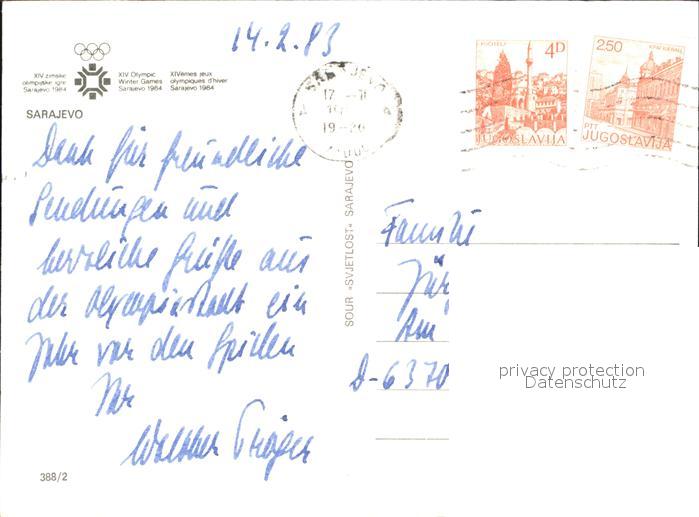 14.2.83
XIV zimske
olimpijske igre
Sarajevo 1984
XIV Olympic
Winter Games
Sarajevo 1984
XIVèmes jeux
olympiques d'hiver
Sarajevo 1984
SARAJEVO
Dank für freundliche
Sendungen und
herzliche Grüße aus
der Olympiastadt ein
Jahr vor den Spielen
Ihr
Walther Tröger
388/2
SOUR »SVJETLOST« SARAJEVO
4D
JUGOSLAVIJA
2.50
PTT
JUGOSLAVIJA
Familie
Jürg
Am
D-6370
privacy protection
Datenschutz